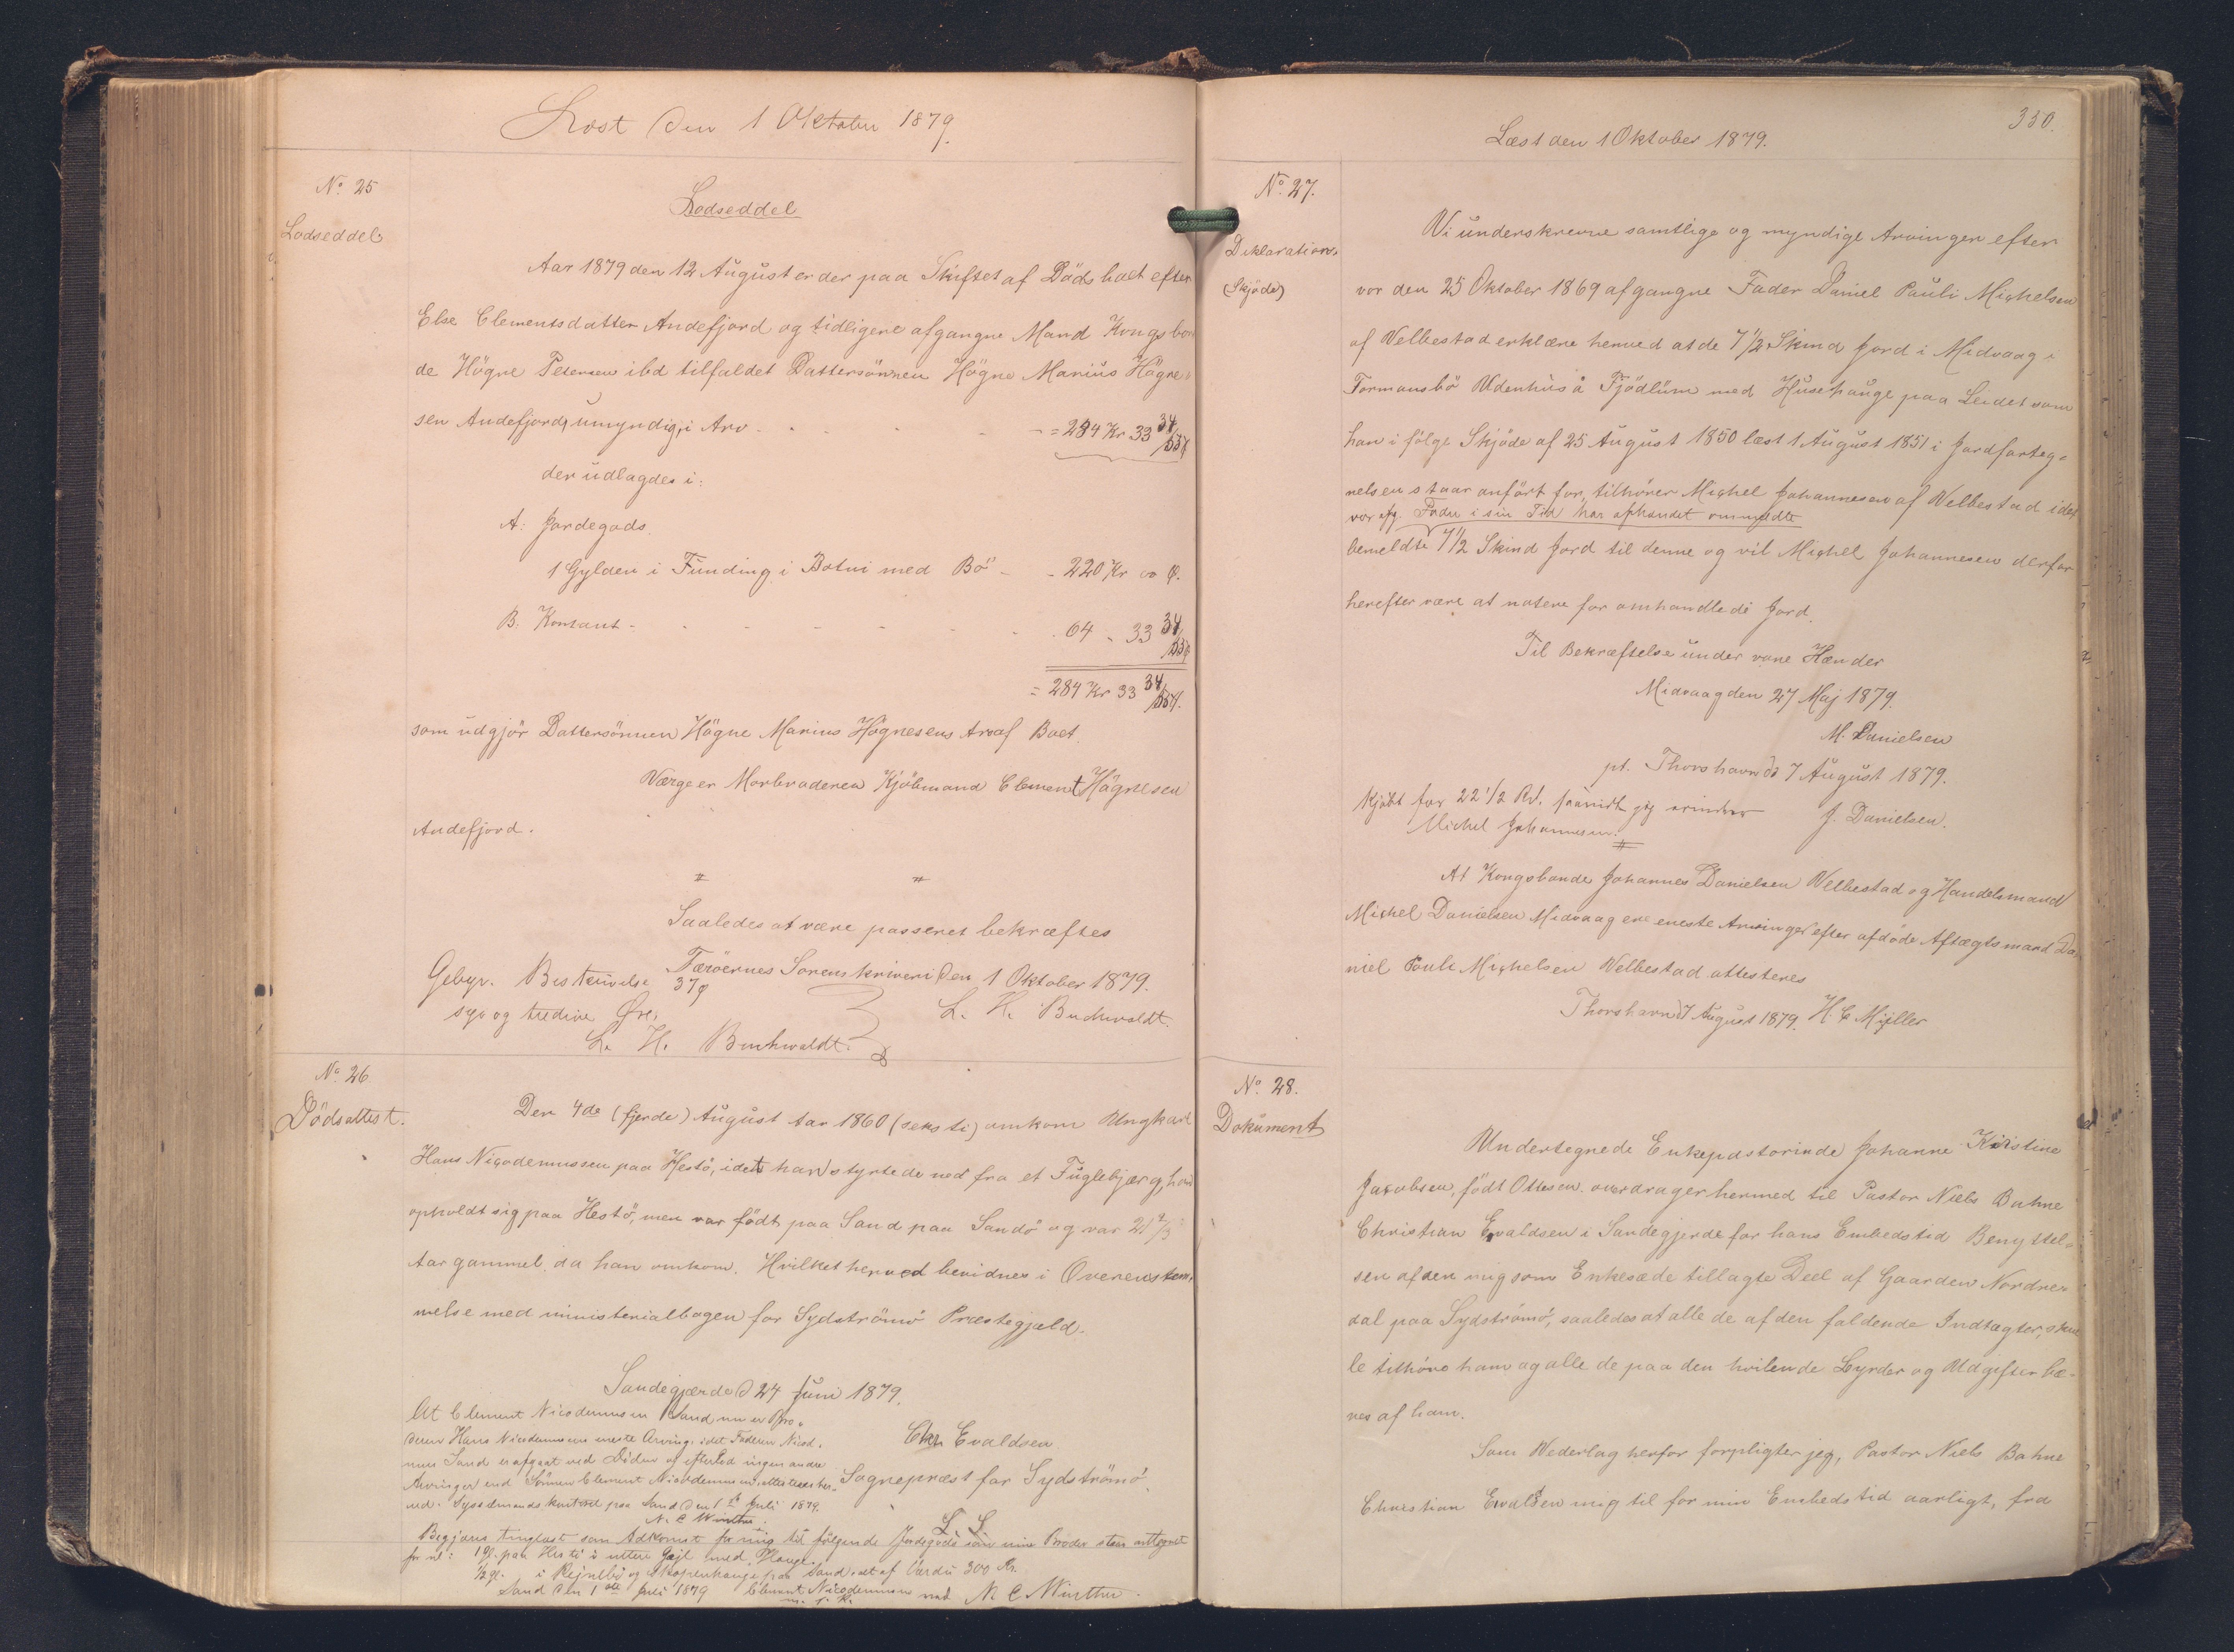 Læst den 1 Oktober 1879.
No 25
Lodseddel
Lodseddel
Aar 1879 den 12 August er der paa Skiftet af Dødsboet efter
Else Clementsdatter Andefjord og tidligere afgangne Mand Kongsbon
de Högne Petersen ibd tilfaldet Dattersönnen Högne Marius Högne-
sen Andefjord, umyndig, i Arv - = 284 Kr 33 34/
der udlagdes i:
A: Jordegods.
1 Gylden i Funding i Botni med Bö - - 220 Kr
B. Kontant - 64 - 33 34/
= 284 Kr 33 34/
som udgjör Dattersönnen Högne Marius Högnesens Arv af Boet.
Værge er Morbroderen Kjöbmand Clement Högnesen
Andefjord.
Saaledes at være passeret bekræftes
Færöernes Sorenskriveri den 1 Oktober 1879.
L. H. Buchwaldt.
Gebyr. Beskrivelse 37
syv og tredive Øre.
L. H. Buchwaldt.
No 26
Dödsattest.
Den 4de (fjerde) August Aar 1860 (seksti) omkom Ungkarl
Hans Nicodemussen paa Hestö, idet han styrtede ned fra et Fuglebjærg, han
opholdt sig paa Hestö, men var født paa Sand paa Sandö og var 21
Aar gammel, da han omkom. Hvilket herved bevidnes i Overenstem-
melse med ministerialbogen for Sydströmö Præstegjæld.
Sandegjærde d 24 Juni 1879.
Chr Evaldsen
Sognepræst for Sydströmö.
L. S.
At Clement Nicodemussen Sand nu er Bro-
deren Hans Nicodemussens eneste Arving, idet Faderen Nicod.
mus Sand er afgaat ved Döden og efterlod ingen andre
Arvinger end Sönnen Clement Nicodemussen, attesteres her-
ved. Sysselmandskontoret paa Sand den 1ste Juli 1879.
N. C Winther.
Begjæres tinglæst som Adkomst for mig til fölgende Jordegods som min Broder staar antegnet
for nl: 1 gl. paa Hesti i uttere Gajl med Hauge.
1/2 gl. i og paa Sand, alt af Værdi 300 Kr.
Sand den 1ste Juli 1879 Clement Nicodemussen ved N. C Winther.
m. f. P.
330.
Læst den 1 Oktober 1879.
No. 27.
Deklaration.
(Skjöde)
Vi underskrevne samtlige og myndige Arvinger efter
vor den 25 Oktober 1869 afgangne Fader Daniel Pauli Michelsen
af Velbestad erklære herved at de 7 1/2 Skind Jord i Midvaag i
Tormansbö Udenhus å Fjödlum med Husehauge paa Leidet som
han i fölge Skjöde af 25 August 1850 læst 1 August 1851 i Jordforteg-
nelsen staar anfört for, tilhörer Michel Johannesen af Velbestad idet
vor afg. Fader i sin Tid har afhændet ommeldte
bemeldte 7 1/2 Skind Jord til denne og vil Michel Johannesen derfor
herefter være at notere for omhandlede Jord.
Til Bekræftelse under vore Hænder
Midvaag den 27 Maj 1879.
M. Danielsen
pt. Thorshavn d 7 August 1879.
J. Danielsen.
Kjöbt for 22 1/2 Rd. saavidt jeg erindrer
Michel Johannesen.
At Kongsbonde Johannes Danielsen Velbestad og Handelsmand
Michel Danielsen Midvaag ere eneste Arvinger efter afdöde Aftægtsmand Da-
niel Pauli Michelsen Velbestad attesteres
Thorshavn d 7 August 1879. H. C Müller
No. 28.
Dokument
Undertegnede Enkepastorinde Johanne Kristine
Jacobsen, födt Ottesen overdrager hermed til Pastor Niels Bahne
Christian Evaldsen i Sandegjerde for hans Embedstid Benyttel-
sen af den mig som Enkesæde tillagte Deel af Gaarden Nordre-
dal paa Sydströmö, saaledes at alle de af den faldende Indtægter, skul
le tilhöre ham og alle de paa den hvilende Byrder og Udgifter bæ-
res af ham.
Som Vederlag herfor forpligter jeg, Pastor Niels Bahne
Christian Evaldsen mig til for min Embedstid aarligt, fra